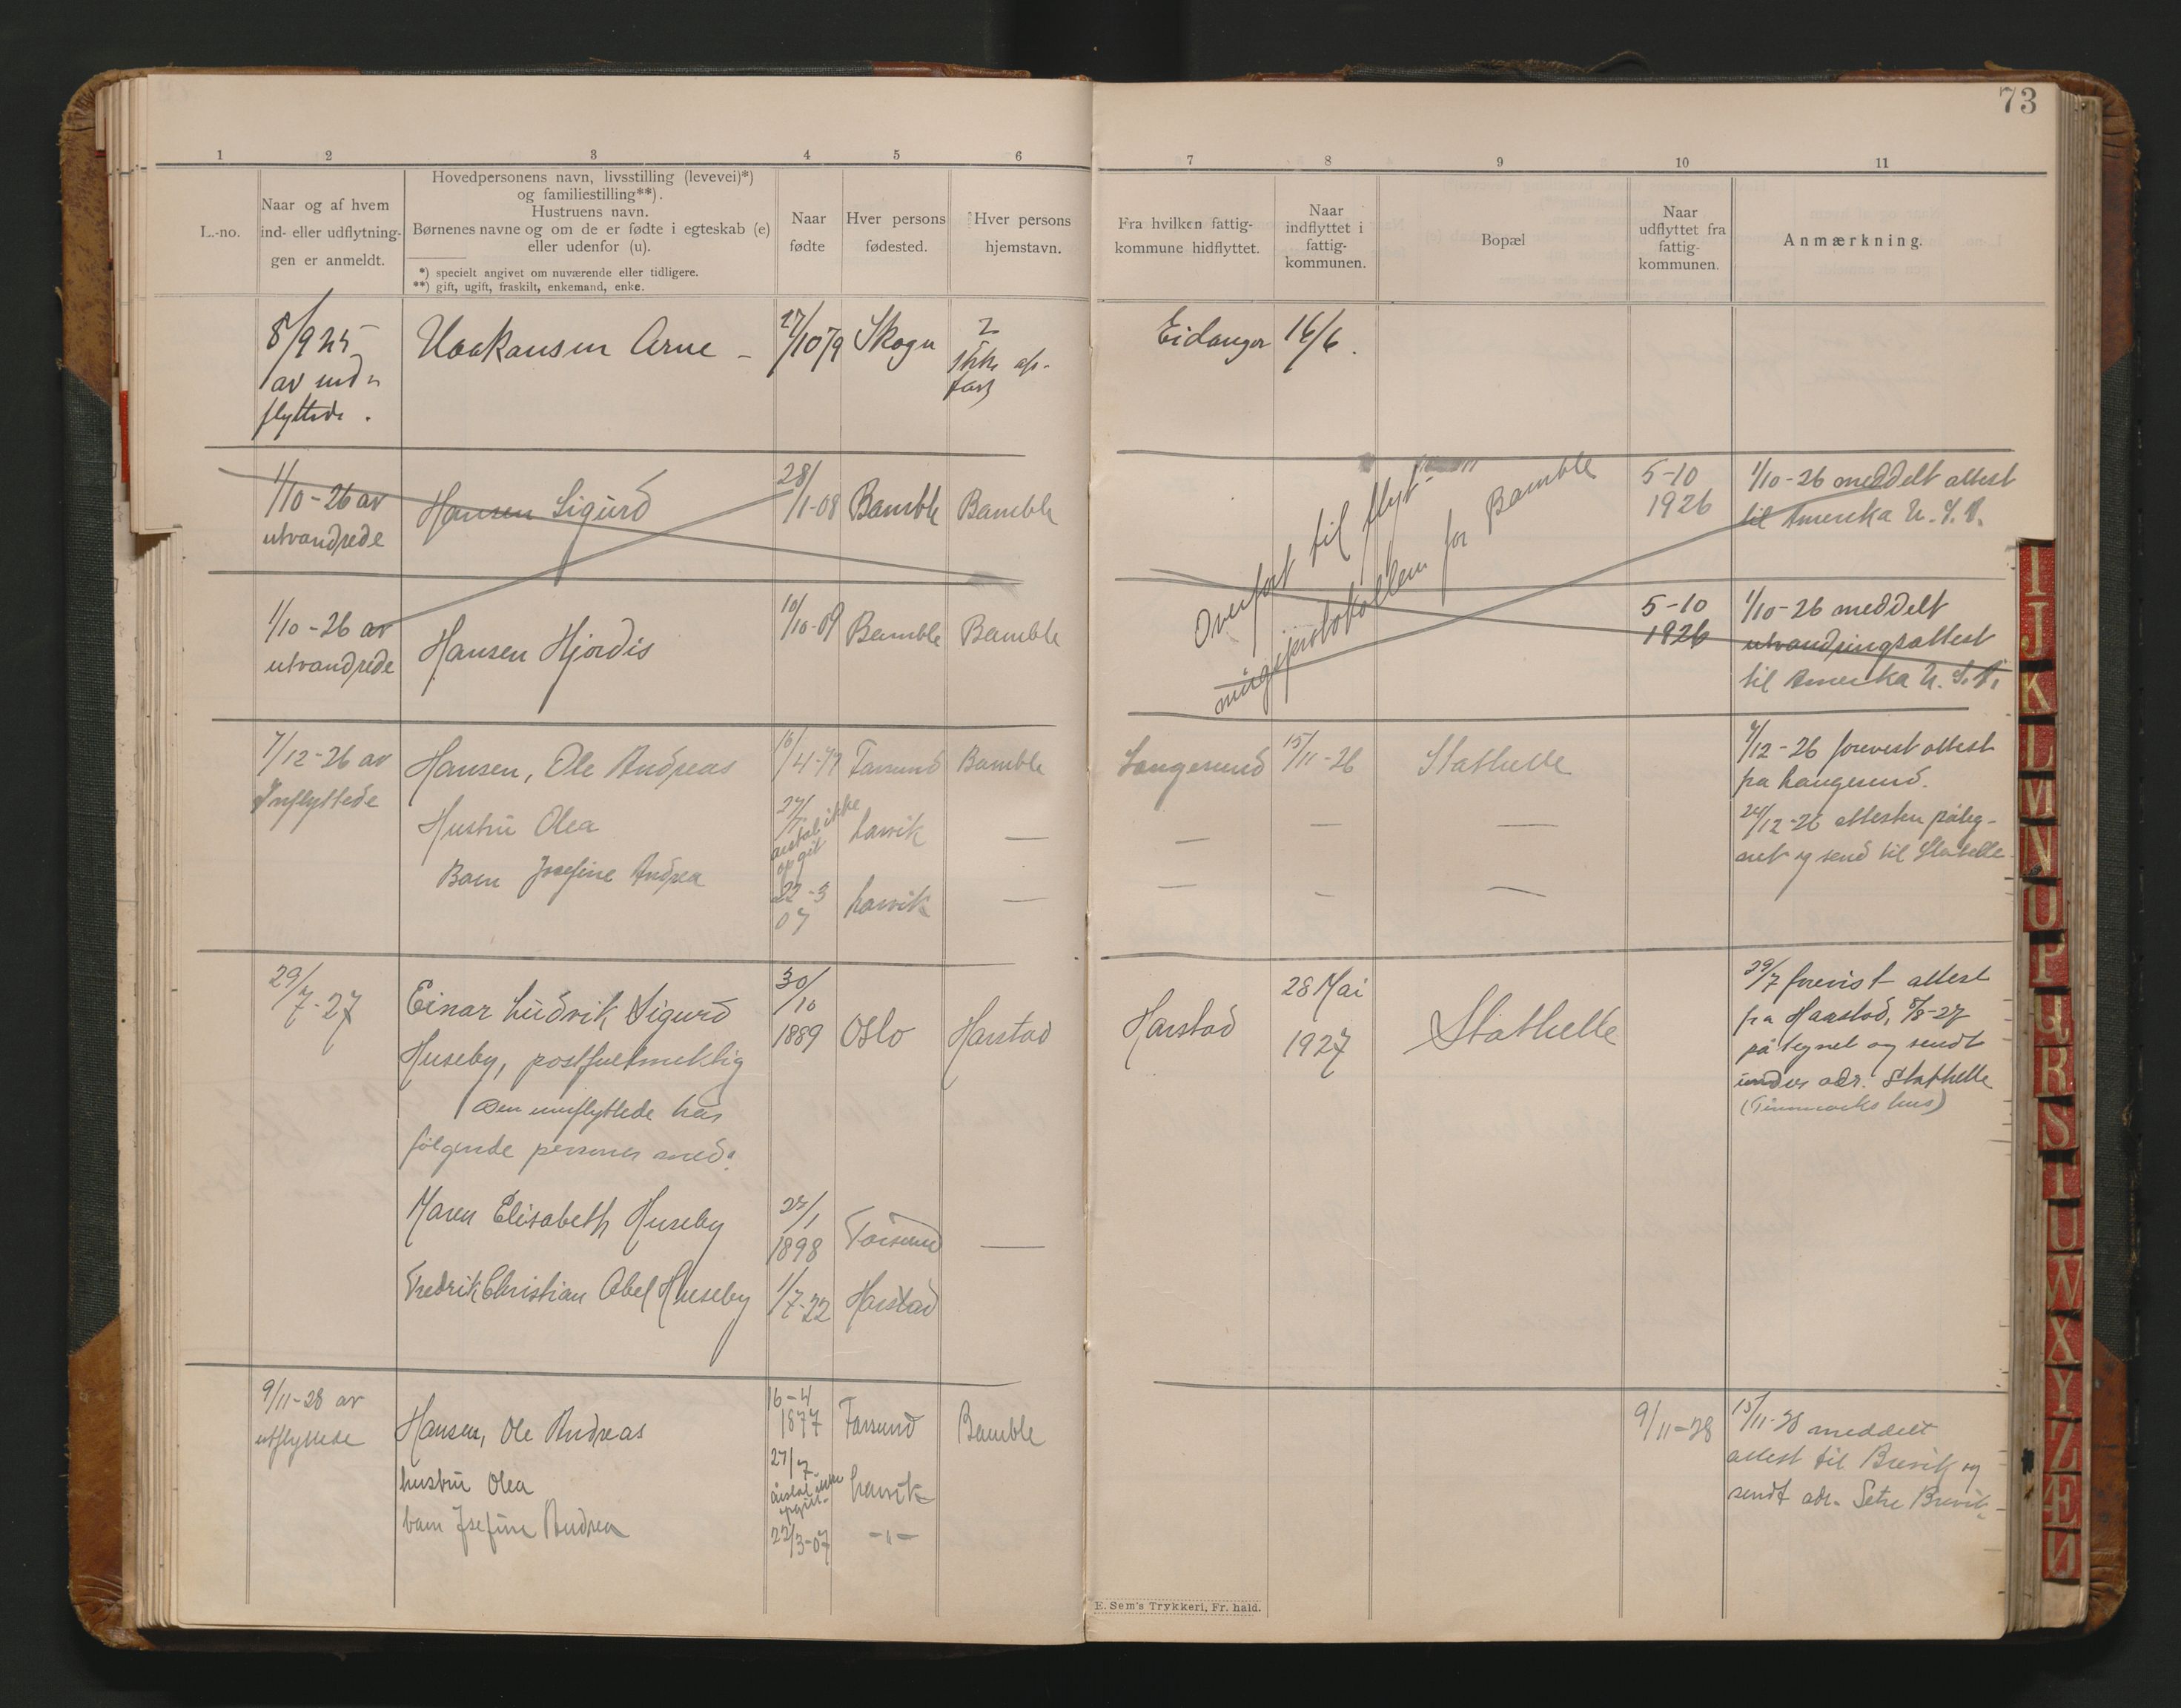 73
1 2 3 4 5 6 7 8 9 10 11
L.-no.
Naar og af hvem
ind- eller udflytnin-
gen er anmeldt.
Hovedpersonens navn, livsstilling (levevei)*)
og familiestilling**).
Hustruens navn.
Børnenes navne og om de er fødte i egteskab (e)
eller udenfor (u).
*) specielt angivet om nuværende eller tidligere.
**) gift, ugift, fraskilt, enkemand, enke.
Naar
fødte
Hver persons
fødested.
Hver persons
hjemstavn.
Fra hvilken fattig-
kommune hidflyttet.
Naar
indflyttet i
fattig-
kommunen.
Bopæl
Naar
udflyttet fra
fattig-
kommunen.
Anmærkning.
8/9 25
av ind-
flyttede.
Haakansen Arne -
27/10 79
Skogn
Eidanger
16/6.
1/10-26 av
utvandrede
Hansen Sigurd
28/1-08
Bamble
Bamble
Overført til flyt-
ningsprotokollen for Bamble
5-10
1926
1/10-26 meddelt attest
til Amerika U.S.A.
1/10-26 av
utvandrede
Hansen Hjørdis
10/10-09
Bamble
Bamble
5-10
1926
1/10-26 meddelt
utvandringsattest
til Amerika U.S.A.
7/12-26 av
Inflyttede
Hansen, Ole Andreas
16/4-77
Farsund
Bamble
Langesund
15/11-26
Stathelle
7/12-26 forevist attest
fra Langesund.
24/12-26 attesten påteg-
net og send til Stathelle
Hustru Olea
27/7
årstal ikke
opgit
Larvik
—
—
—
—
Barn Josefine Andrea
22-3
07
Larvik
—
—
—
—
29/7-27
Einar Ludvik Sigurd
Huseby, postfuldmektig
Den innflyttede har
følgende personer med:
30/10
1889
Oslo
Harstad
Harstad
28 Mai
1927
Stathelle
29/7 forevist attest
fra Harstad, 8/8-27
påtegnet og sendt
under adr. Stathelle
Maren Elisabeth Huseby
27/1
1898
—
Fredrik Christian Abel Huseby
1/7-22
Harstad
9/11-28 av
utflyttede
Hansen, Ole Andreas
16-4
1877
Farsund
Bamble
9/11-28
15/11-28 meddelt
attest til Brevik og
sendt adr. Setre Brevik.
hustru Olea
27/7
årstal ikke
opgitt
Larvik
barn Josefine Andrea
22/3-07
-"-
E. Sem's Trykkeri, Fr. hald.
I
J
K
L
M
N
O
P
Q
R
S
T
U
W
X
Y
Z
Æ
Ø